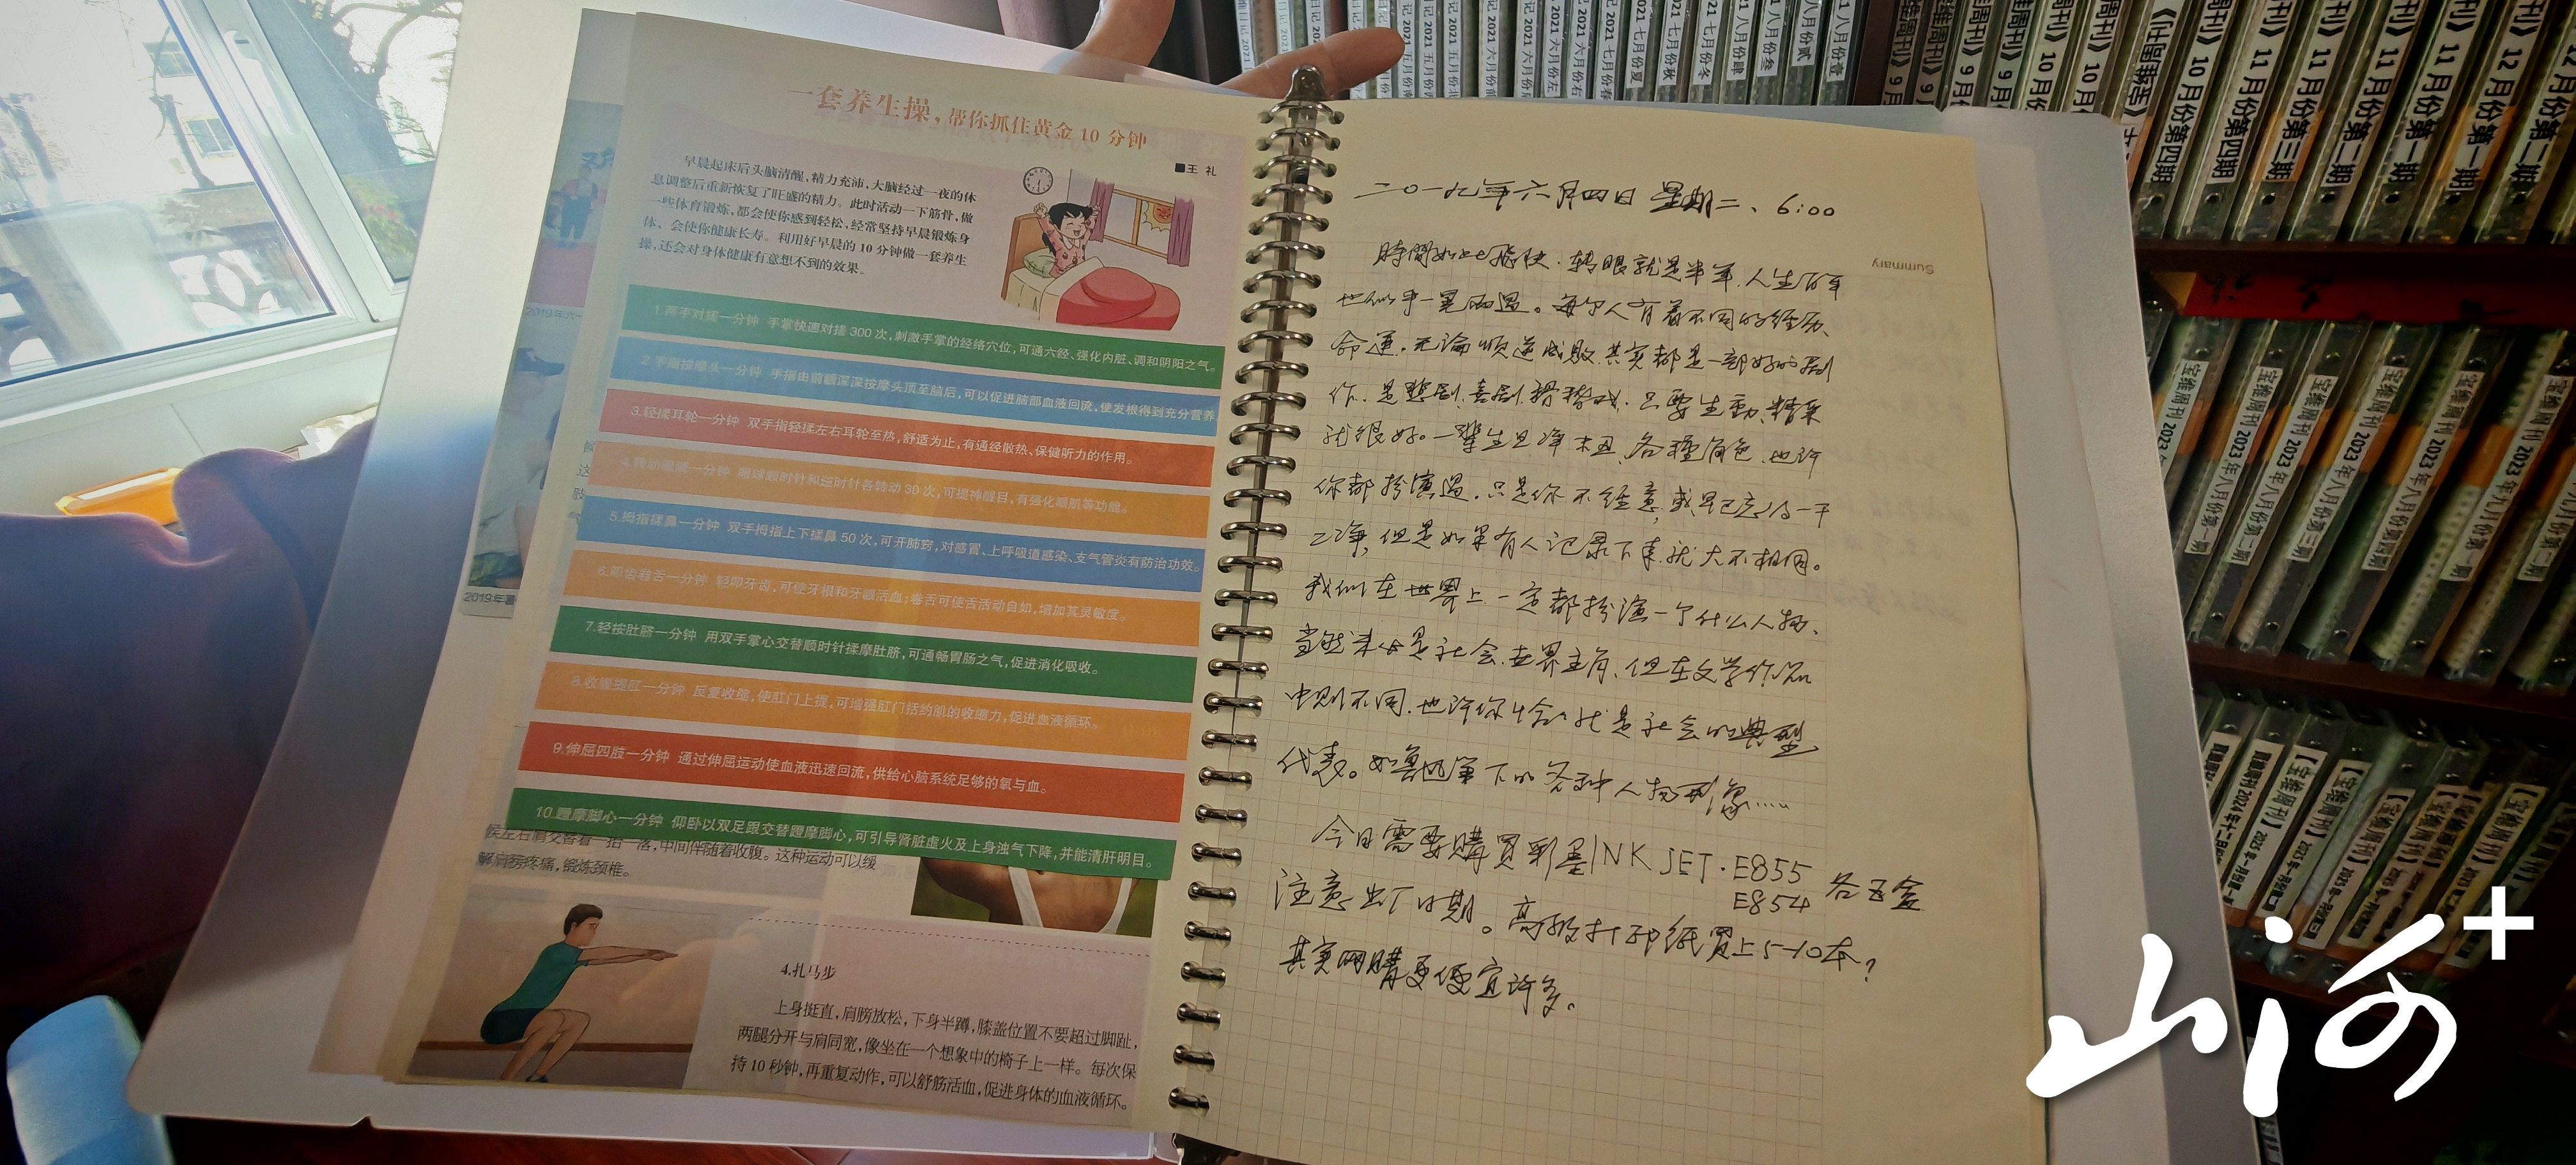 一套养生操，帮你抓住黄金 10 分钟
■王 礼
早晨起床后头脑清醒，精力充沛，大脑经过一夜的休
息调整后重新恢复了旺盛的精力。此时活动一下筋骨，做
一些体育锻炼，都会使你感到轻松，经常坚持早晨锻炼身
体，会使你健康长寿。利用好早晨的 10 分钟做一套养生
操，还会对身体健康有意想不到的效果。
1.两手对搓一分钟 手掌快速对搓 300 次，刺激手掌的经络穴位，可通六经、强化内脏、调和阴阳之气。
2.手指按摩头一分钟 手指由前额深深按摩头顶至脑后，可以促进脑部血液回流，使发根得到充分营养
3.轻揉耳轮一分钟 双手指轻揉左右耳轮至热，舒适为止，有通经散热、保健听力的作用。
4.转动眼睛一分钟 眼球顺时针和逆时针各转动 30 次，可提神醒目，有强化眼肌等功能。
5.拇指揉鼻一分钟 双手拇指上下揉鼻 50 次，可开肺窍，对感冒、上呼吸道感染、支气管炎有防治功效。
6.叩齿卷舌一分钟 轻叩牙齿，可使牙根和牙龈活血；卷舌可使舌活动自如，增加其灵敏度。
7.轻按肚脐一分钟 用双手掌心交替顺时针揉摩肚脐，可通畅胃肠之气，促进消化吸收。
8.收腹提肛一分钟 反复收缩，使肛门上提，可增强肛门括约肌的收缩力，促进血液循环。
9.伸屈四肢一分钟 通过伸屈运动使血液迅速回流，供给心脑系统足够的氧与血。
10.蹬摩脚心一分钟 仰卧以双足跟交替蹬摩脚心，可引导肾脏虚火及上身浊气下降，并能清肝明目。
候左右肩交替着一抬一落，中间伴随着收腹。这种运动可以缓
解肩膀疼痛，锻炼颈椎。
4.扎马步
上身挺直，肩膀放松，下身半蹲，膝盖位置不要超过脚趾，
两腿分开与肩同宽，像坐在一个想象中的椅子上一样。每次保
持 10 秒钟，再重复动作，可以舒筋活血，促进身体的血液循环。
二〇一九年六月四日 星期二、6:00
Summary
時間如此飛快．转眼就是半年．人生百年
也似乎一晃而過。每个人有着不同的经历、
命運．无论顺逆成败．其实都是一部好的剧
作．是悲剧、喜剧、滑稽戏．只要生動、精采
就很好。一辈生旦净末丑、各種角色．也许
你都扮演過．只是你不经意，或早已忘得一干
二净，但是如果有人记录下来．就大不相同。
我们在世界上一定都扮演一个什么人物、
当然未必是社会、世界主角、但在文学作品
中则不同．也许你恰恰就是社会的典型
代表。如鲁迅笔下的各种人物形象……
今日需要購買彩墨INK JET·E855
E854 各五盒
注意出厂日期。高级打印纸買上5-10本？
其实网購更便宜许多。
2019年六一
2019年暑
宝维周刊 2023 年八月份第一期
宝维周刊 2023 年八月份第二期
宝维周刊 2023 年八月份第三期
宝维周刊 2023 年八月份第四期
宝维周刊 2023 年九月份第一期
山河+